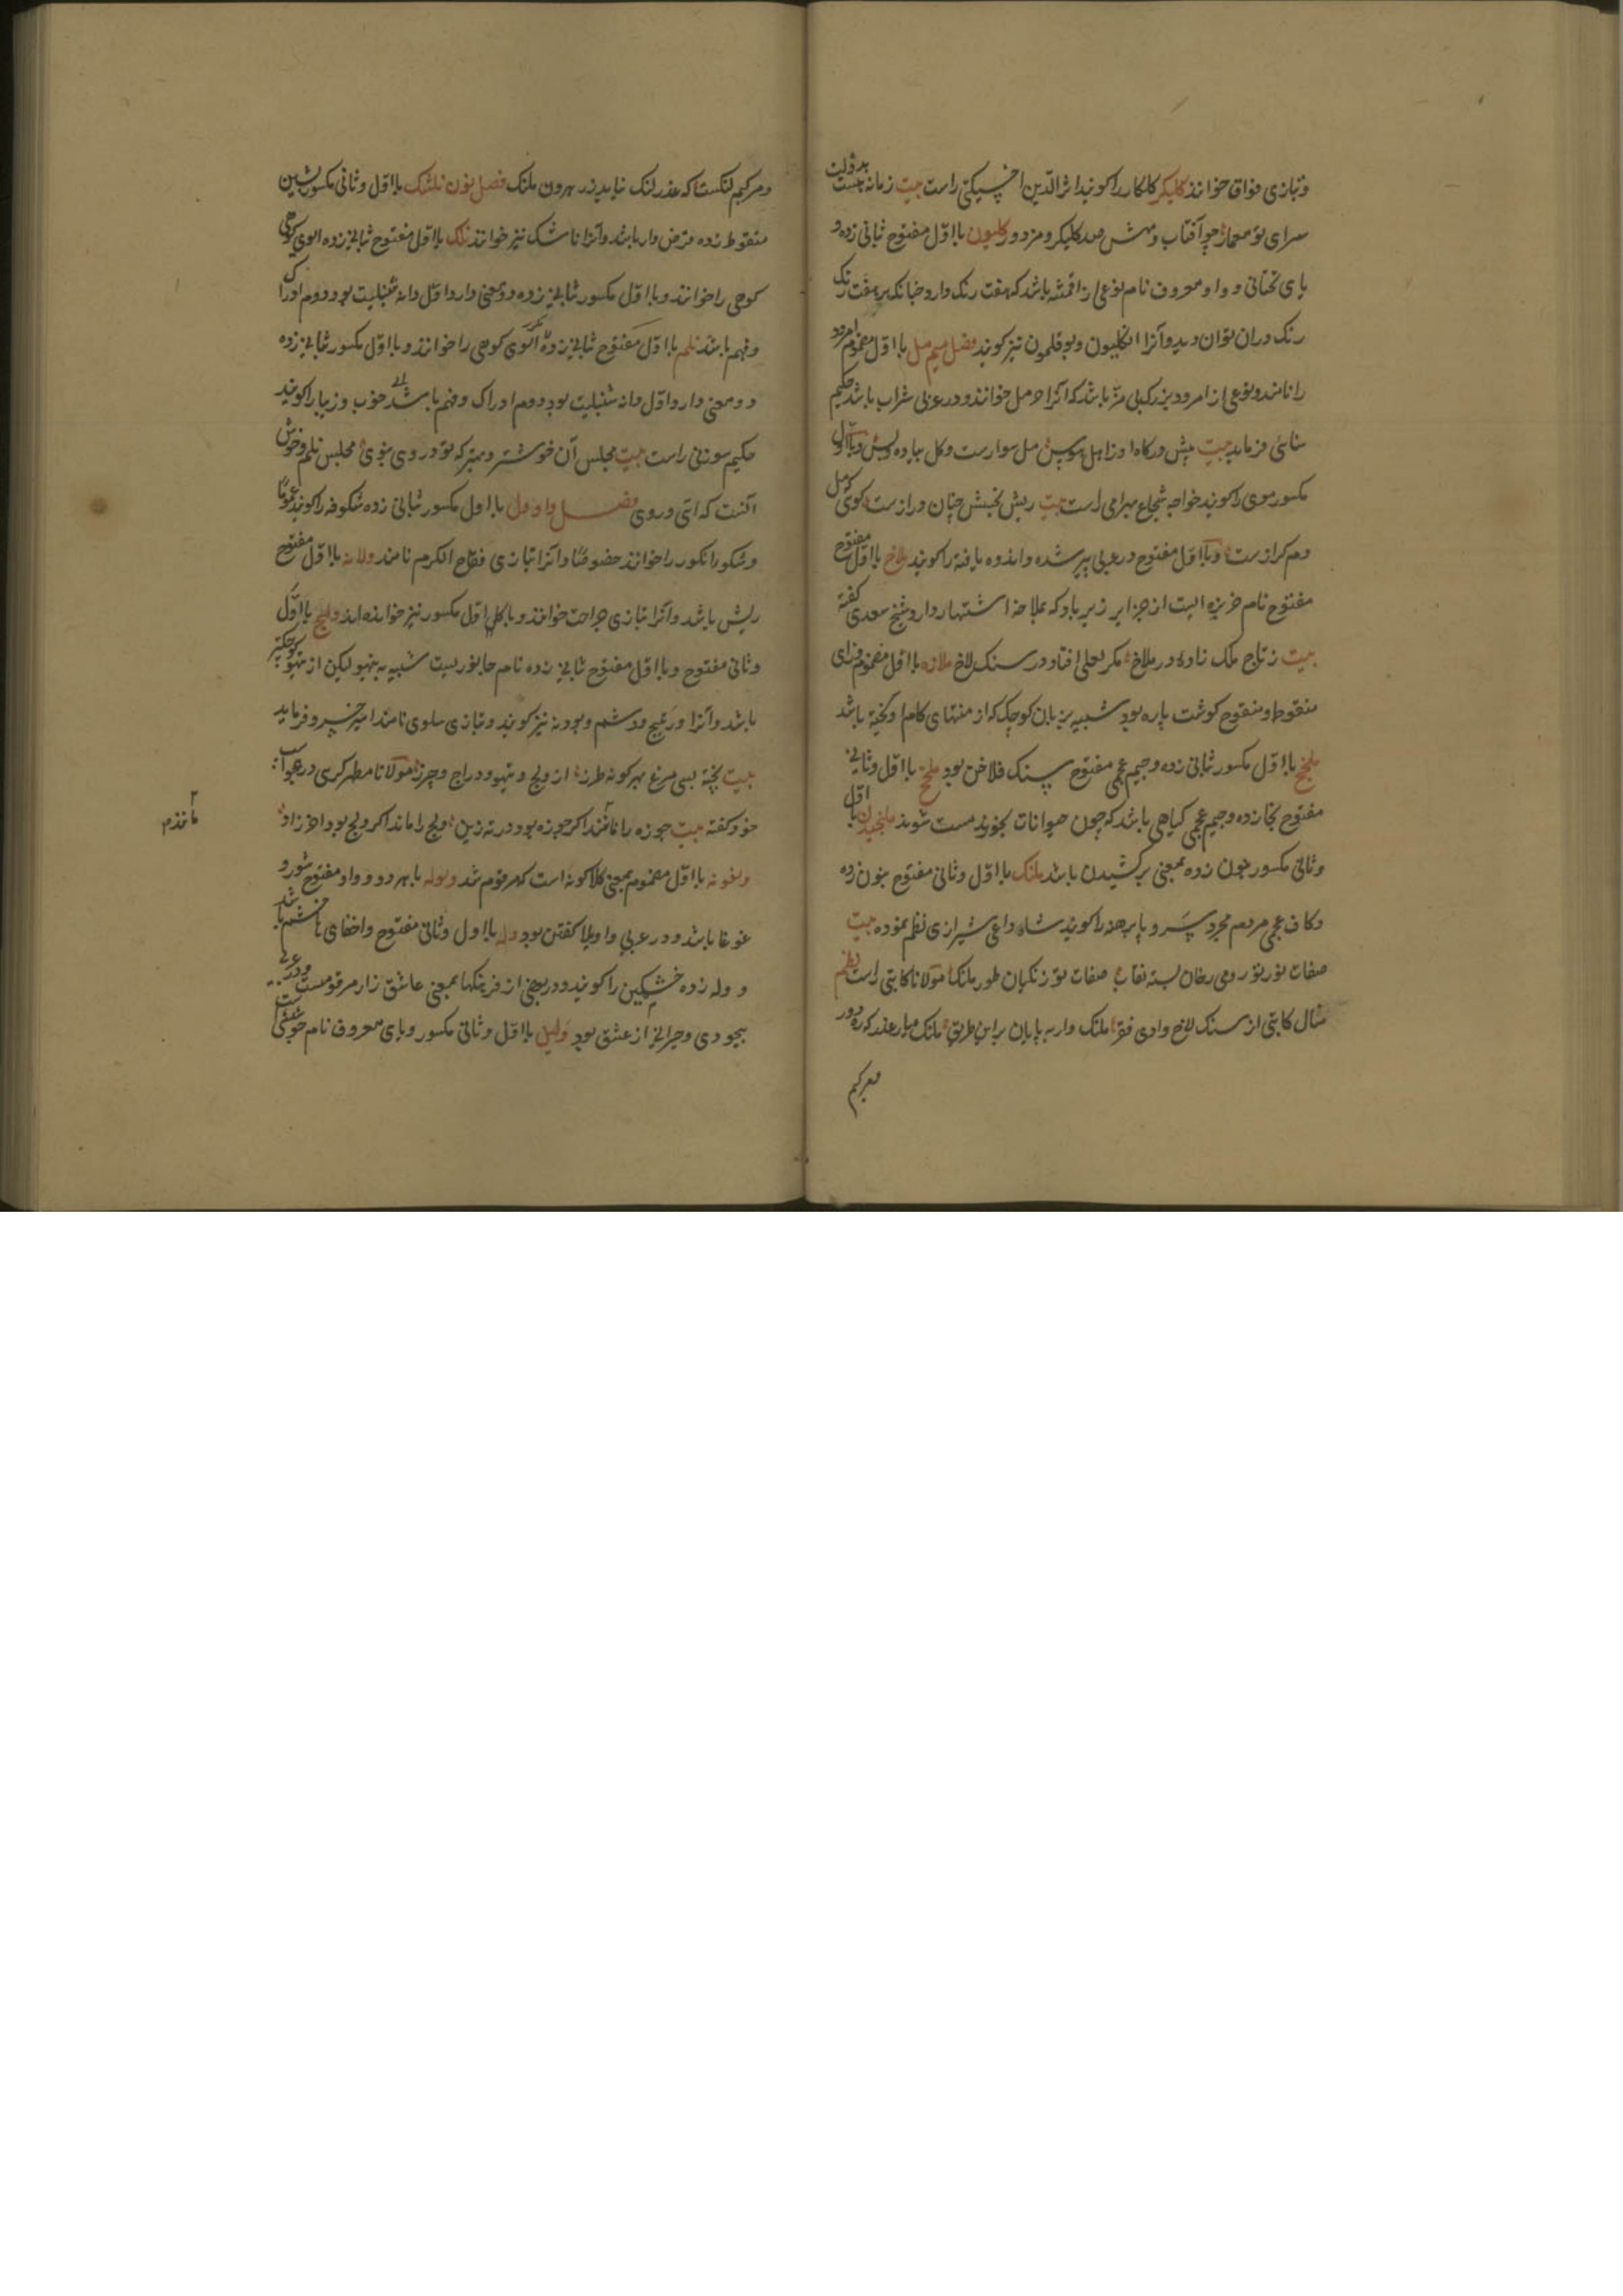 وتبازی فواق خوانند کلیکر کلکار را کویند اثیرالدین اخسیکتی راست بیت زمانه چیست بدولت
سرای تو معمار چو آفتاب و مهش صد کلیکر و مزدور کلیون بااول مفتوح بثانی زده و
یای تحتانی و واو معروف نام نوعی از اقمشه باشد که هفت رنک دارد چنانکه هر هفت رنک
رنک دران توان دید وآنرا انکلیون وبوقلمون نیز کویند فصل میم مل بااول مضموم امرود
را نامند ونوعی از امرود بزرک بی مزه باشد که آنرا خرمل خوانند ودر عربی شراب باشد حکیم
سنائی فرماید بیت پیش درکاه او زاهل سوس مل سوارست وکل پیاده وبس وبااول
مکسور موی را کویند خواجه شجاع بهرامی راست بیت ریش نحبش چنان درازست کوئی مل
دم کرازست وبااول مفتوح در عربی پیر شده واندوه یافته را کویند ملاخ بااول مفتوح
مفتوح نام جزیره ایست از جزایر زیرباد که بملاخه اشتهار دارد شیخ سعدی کفته
بیت ز تاج ملک زاده در ملاخ مکر لعلی افتاد در سنک لاخ ملازه بااول مضموم وزای
منقوط ومنقوح کوشت پاره بود شبیه بزبان کوچک که از منتهای کام آویخته باشد
ملخج بااول مکسور بثانی زده وجیم عجمی مفتوح سنک فلاخن بود ملخ بااول وثانی
مفتوح بخا زده وجیم عجمی کیاهی باشد که چون حیوانات بخورند مست شوند ملنجیدن بااول
وثانی مکسور بنون زده بمعنی برکشیدن باشد ملنک بااول وثانی مفتوح بنون زده
وکاف عجمی مردم مجرد سر و پابرهنه را کویند شاه داعی شیرازی نظم نموده بیت
صفات نور تو رومی رخان بسته نقاب صفات تو زنکیان طور ملنک مولانا کاتبی راست نظم
مثال کاتبی از سنک لاخ وادی فقر ملنک وار به پایان بر این طریق ملنک میار عذر که ره دور
ومرکبم
ومرکبم لنکست که عذر لنک نیاید زرهرون ملنک فصل نون نلشک بااول وثانی مکسور بشین
منقوط زده قرض دار باشد وآنرا ناشک نیز خوانند نلک بااول مفتوح بثانی زده آلوی کوهی
کوهی را خوانند وبااول مکسور بثانی زده دو معنی دارد اول دانه شنبلیت بود دوم ادراک
وفهم باشد نلم بااول مفتوح بثانی زده آلوی کوهی را خوانند وبااول مکسور بثانی زده
دو معنی دارد اول دانه شنبلیت بود دوم ادراک وفهم باشد خوب وزیبا را کویند
حکیم سوزنی راست بیت مجلس آن خوشتر وبهتر که تو در وی بوی مجلس نلم وخوش
آنست که اتی در وی فصل واو ول بااول مکسور بثانی زده شکوفه را کویند عموما
وشکوفه انکور را خوانند خصوصا وآنرا بتازی فقاح الکرم نامند ولانه بااول مفتوح
ریش باشد وآنرا بتازی جراحت خوانند وباکل اول مکسور نیز خوانده اند ولج بااول
وثانی مفتوح وبااول مفتوح بثانی زده نام جانوریست شبیه به تیهو لیکن از تیهو کوچکتر
باشد وآنرا ورتیج ووشم وبودنه نیز کویند وبتازی سلوی نامند امیرخسرو فرماید
بیت پخته بسی مرغ بهر کونه طرز از ولج و تیهو و دراج وچرز مولانا مطهر کرسی در هجو اسب
خود کفته بیت جوزه را مانند اکر جوزه بود در ته زین ولج را ماند اکر ولج بود افزراد
ولغونه بااول مضموم بمعنی کلاکونه است که مرقوم شد ولوله بابهر دو واو مفتوح شور و
غوغا باشد ودر عربی واویلا کفتن بود وله بااول وثانی مفتوح واخفای ها خشم باشد
و وله زده خشمکین را کویند ودر بعضی از فرهنکها بمعنی عاشق زار مرقومست ودر عربی
بیخودی وحیرانی از عشق بود ولیل بااول وثانی مکسور ویای معروف نام خوشی است
مانند م